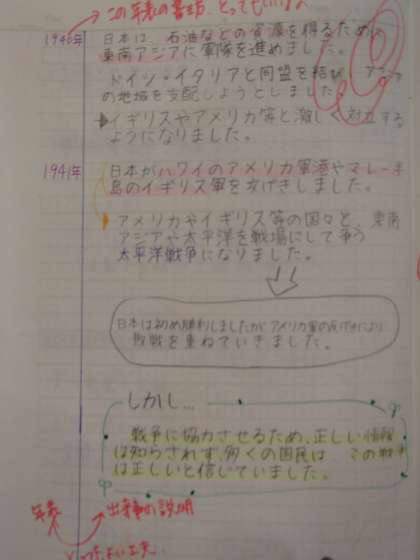 この年表の書き方、とってもいい
1940年
日本は、石油などの資源を得るために
東南アジアに軍隊を進めました。
ドイツ・イタリアと同盟を結び、アジア
の地域を支配しようとしました
イギリスやアメリカ等と激しく対立する
ようになりました。
1941年
日本がハワイのアメリカ軍港やマレー半
島のイギリス軍を攻げきしました。
アメリカやイギリス等の国々と、東南
アジアや太平洋を戦場にして争う
太平洋戦争になりました。
日本は初め勝利しましたがアメリカ軍の反げきにより
敗戦を重ねていきました。
しかし...
戦争に協力させるため、正しい情報
は知らされず、多くの国民は この戦争
は正しいと信じていました。
年表
出来事の説明